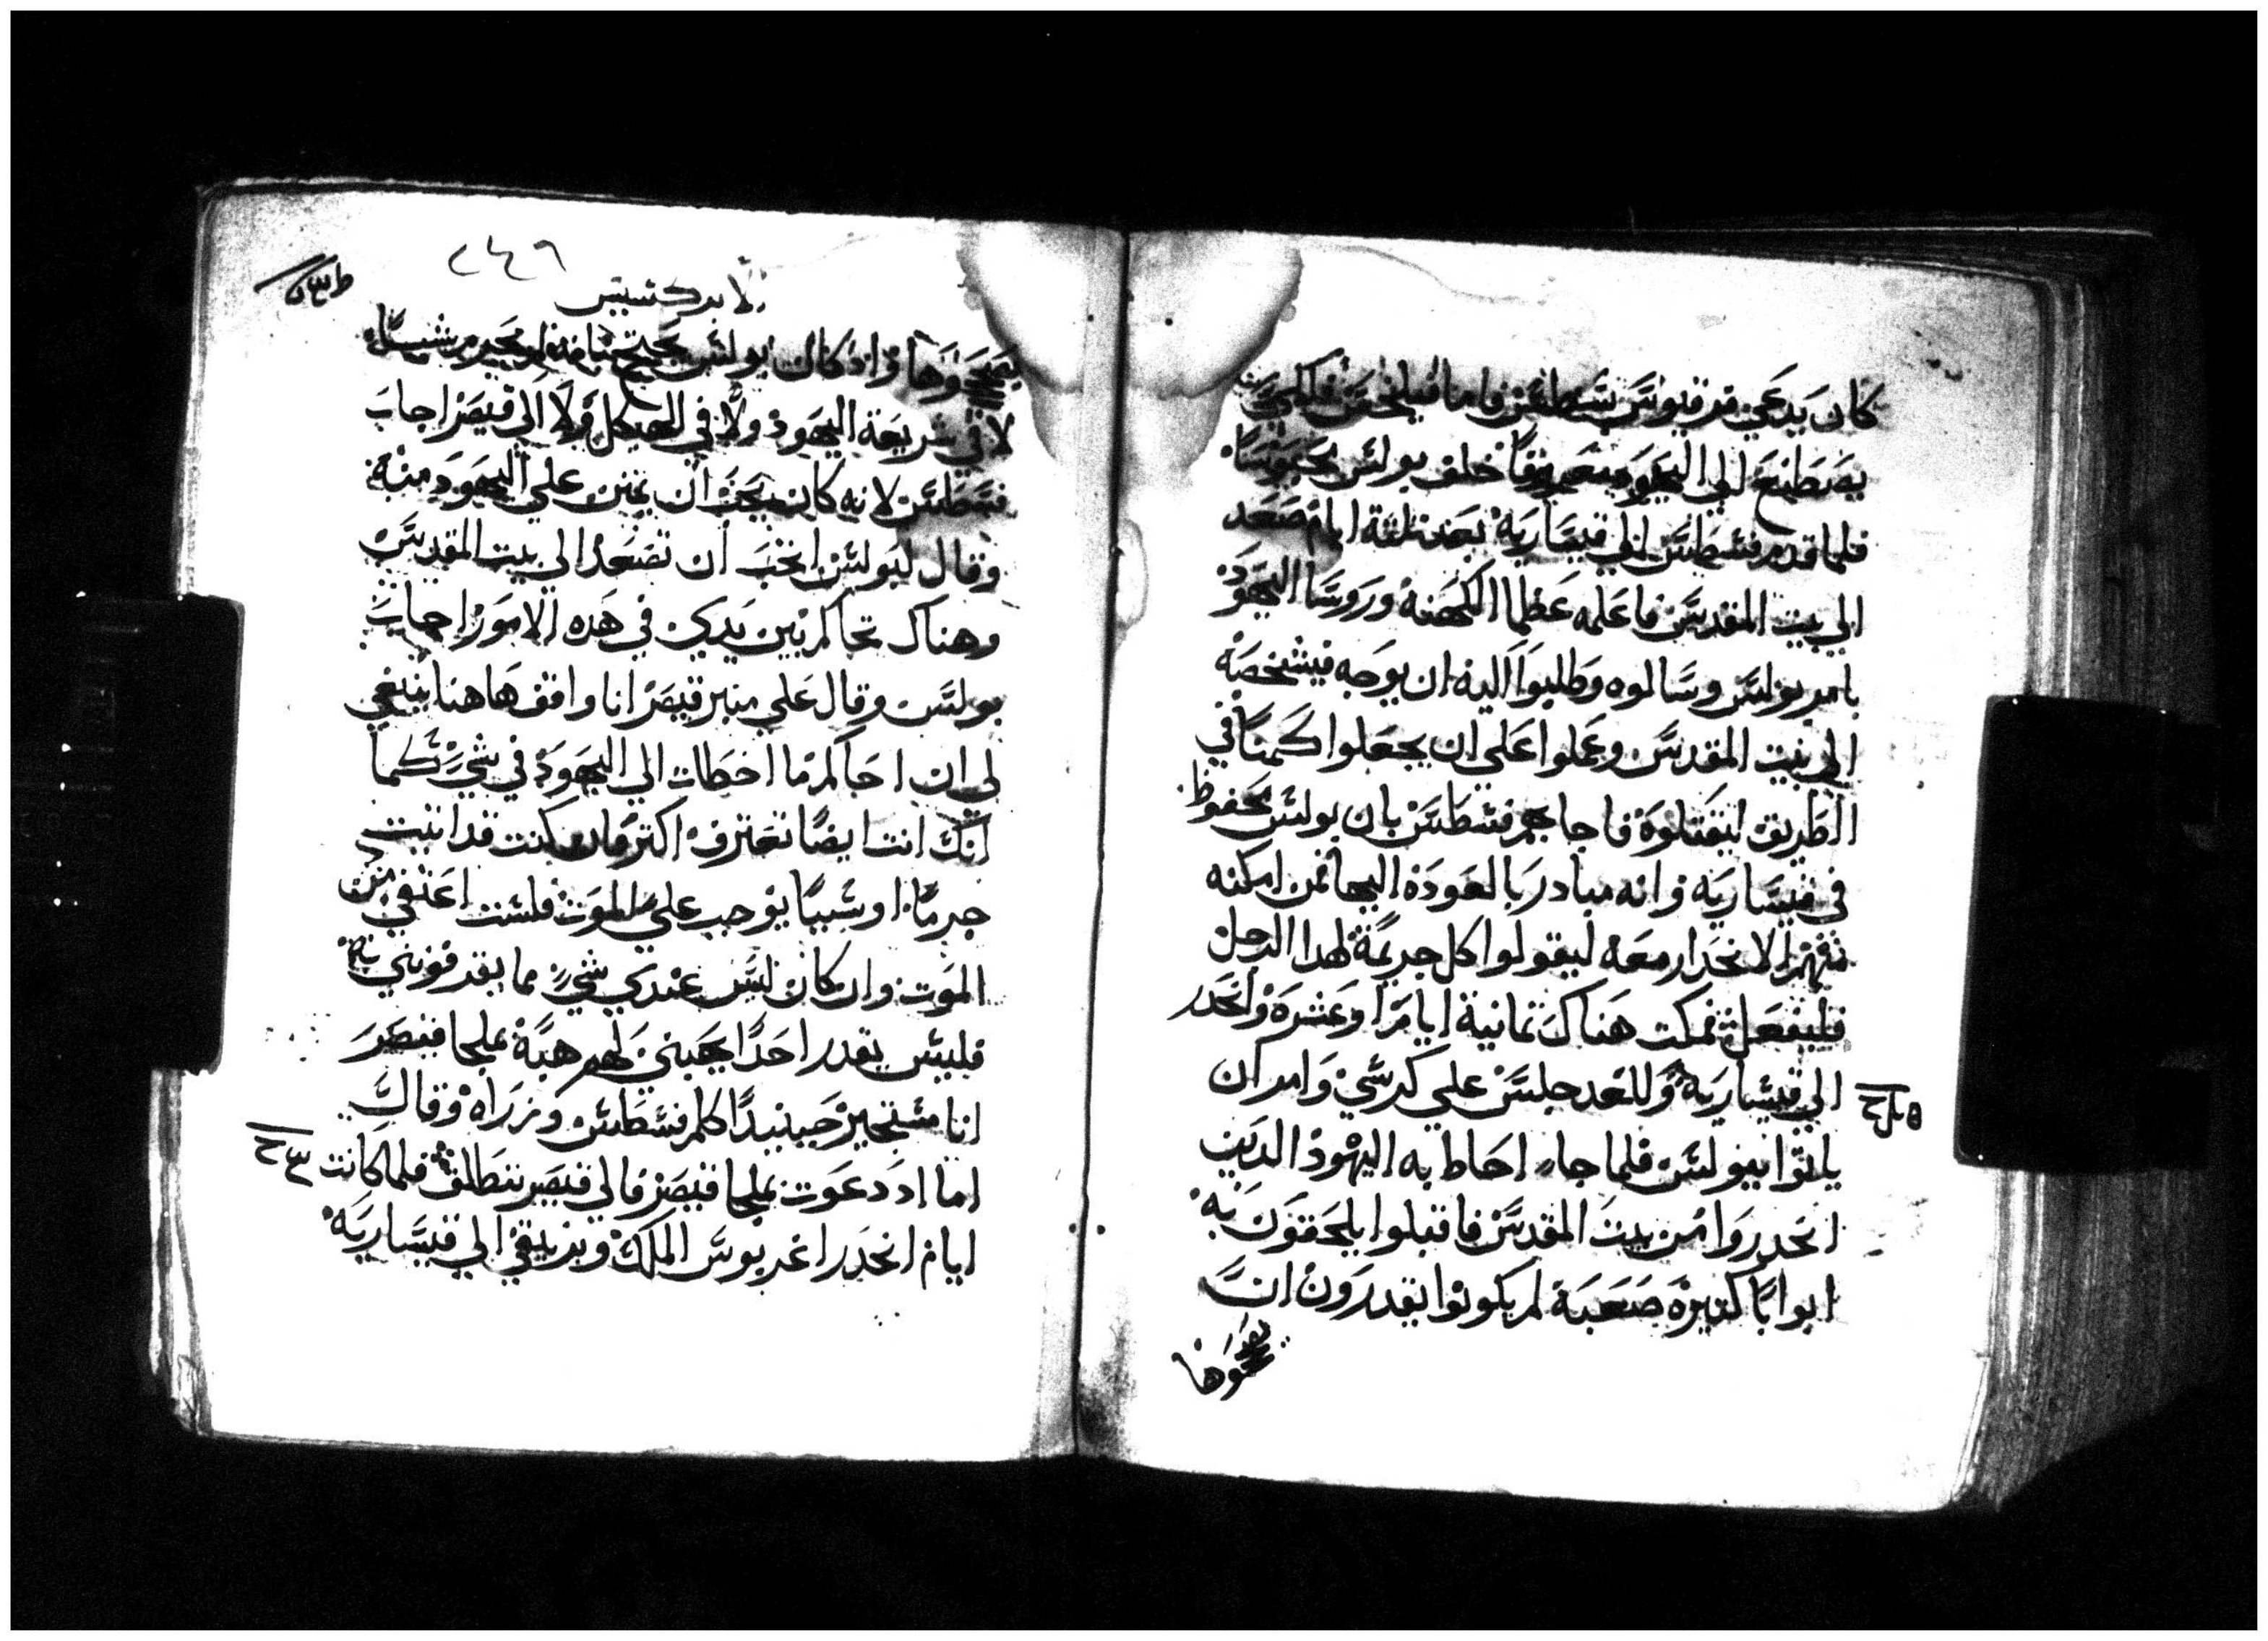 كان يدعي فرقيوس فسطس فاما فيلخس فلكي
يصطنع الي اليهود معروفًا خلف بولس محبوسًا
فلما قدم فسطس الي قيسارية بعد ثلثة ايام صعد
الي بيت المقدس فاعلمه عظما الكهنة وروسا اليهود
بامر بولس وسالوه وطلبوا اليه ان يوجه فيشخصه
الي بيت المقدس وعملوا علي ان يجعلوا كمينًا في
الطريق ليقتلوه فاجابهم فسطس بان بولس محفوظ
في قيساريه وانه مبادر بالعودة اليها فمن امكنه
منهم الانحدار معه ليقولوا كل جريمة لهدا الرجل
فليفعل فمكت هناك تمانية ايام او عشره وانحدر
الي قيساريه وللغد جلس علي كرسي وامر ان
ياتوا ببولس فلما جاء احاط به اليهود الدين
انحدروا من بيت المقدس فاقبلوا يلحقون به
ابوابًا كتيرة صعبة لم يكونوا يقدرون ان
يصححوها
٢٤٦
الابركسيس
يصححوها واد كان بولس يحتج بانه لم يجرم شيًا
لا في شريعة اليهود ولا في الهيكل ولا الي قيصر اجاب
فسطس لانه كان يحب ان يمنن علي اليهود منة
وقال لبولس اتحب ان تصعد الي بيت المقدس
وهناك تحاكم بين يدي في هده الامور اجاب
بولس وقال علي منبر قيصر انا واقف هاهنا ينبغي
لي ان احاكم ما اخطات الي اليهود في شي كما
انك انت ايضًا تعترف اكتر فان كنت قد اتيت
جرمًا او شيًا يوجب علي الموت فلست اعتفي من
الموت وان كان ليس عندي شي مما يقدفوني به
فليس يقدر احدًا يهبني لهم هبة بملجا قيصر
انا مستجير حينيدًا كلم فسطس وزراه وقال
اما اد دعوت بملجا قيصر فالي قيصر تنطلق فلما كانت
ايام انحدر اغريبوس الملك وبرنيقي الي قيساريه